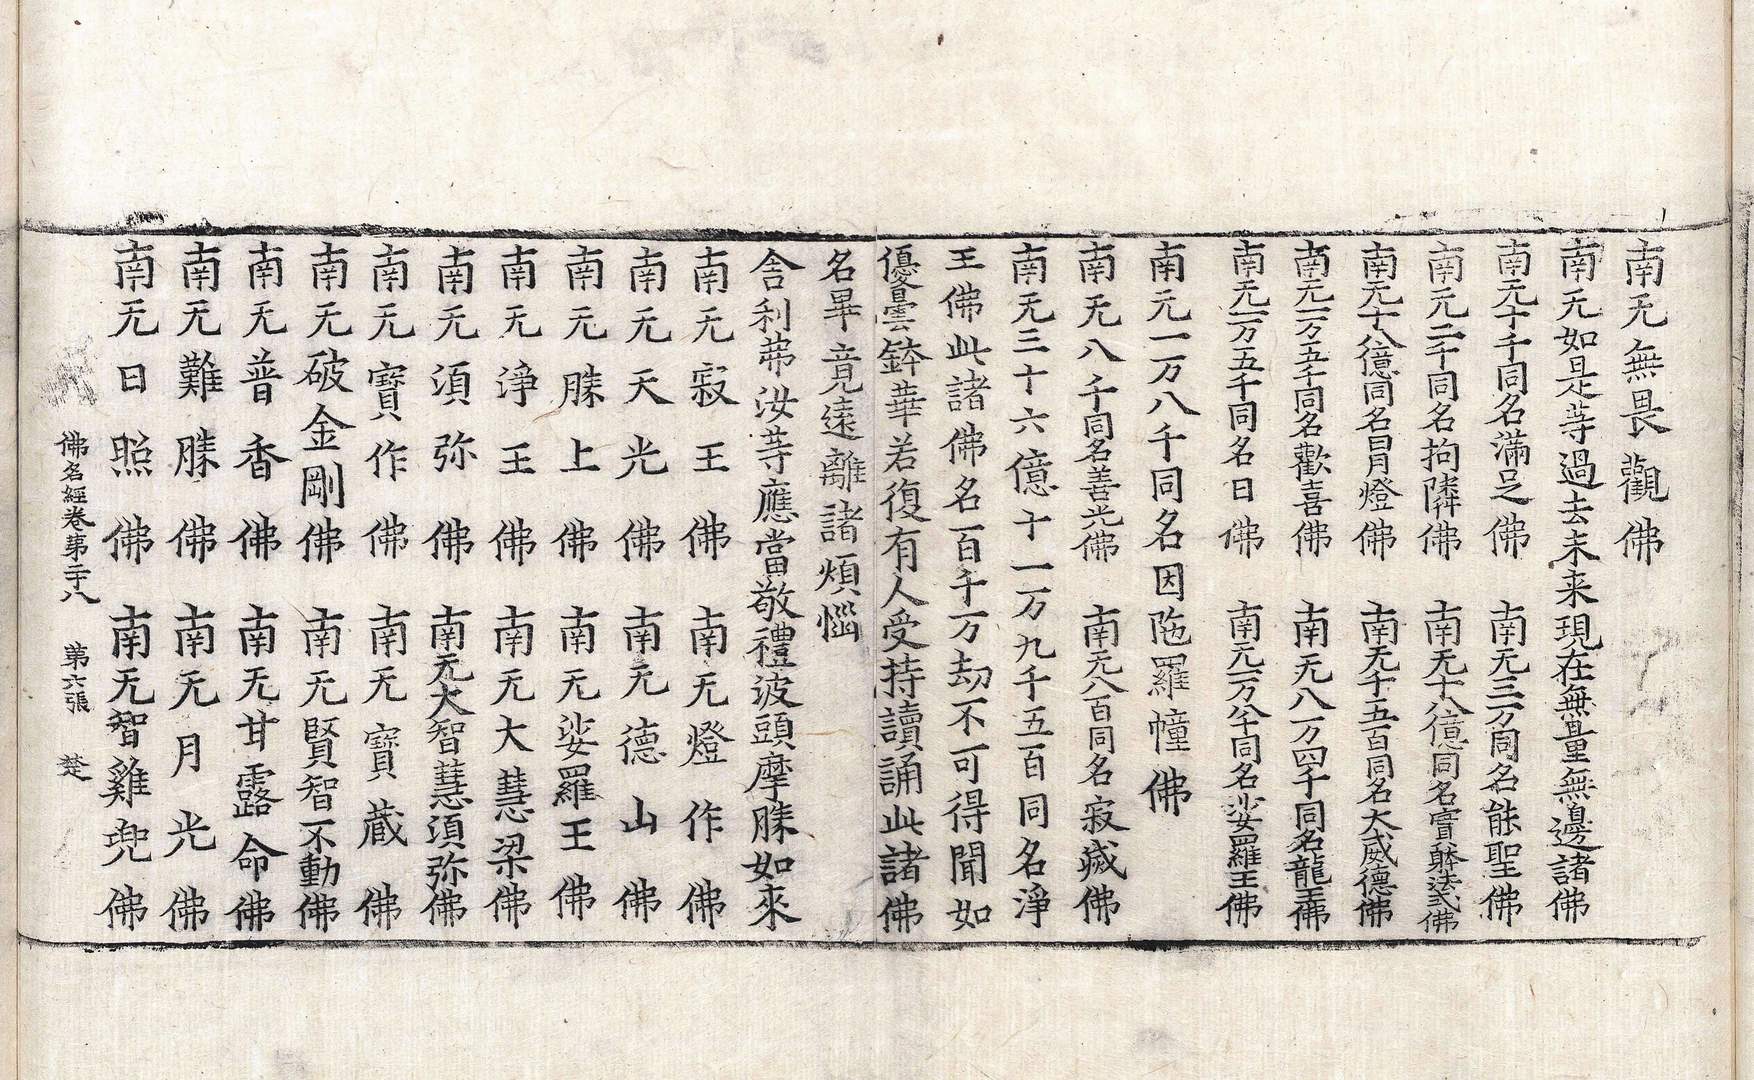 南无無畏觀佛
南无如是等過去未来現在無量無邊諸佛
南无十千同名滿足佛 南无三万同名能聖佛
南无二千同名拘隣佛 南无十八億同名實躰法式佛
南无十八億同名日月燈佛 南无千五百同名大威德佛
南无一万五千同名歡喜佛 南无八万四千同名龍王佛
南无一万五千同名日佛 南无一万八千同名娑羅王佛
南无一万八千同名因陁羅幢佛
南无八千同名善光佛 南无八百同名寂滅佛
南无三十六億十一万九千五百同名淨
王佛此諸佛名百千万劫不可得聞如
優曇鉢華若復有人受持讀誦此諸佛
名畢竟遠離諸煩惱
舍利弗汝等應當敬禮波頭摩勝如來
南无寂王佛 南无燈作佛
南无天光佛 南无德山佛
南无勝上佛 南无娑羅王佛
南无淨王佛 南无大慧梁佛
南无須弥佛 南无大智慧須弥佛
南无寶作佛 南无寶藏佛
南无破金剛佛 南无賢智不動佛
南无普香佛 南无甘露命佛
南无難勝佛 南无月光佛
南无日照佛 南无智雞兜佛
佛名經卷第二十八 第六張 楚